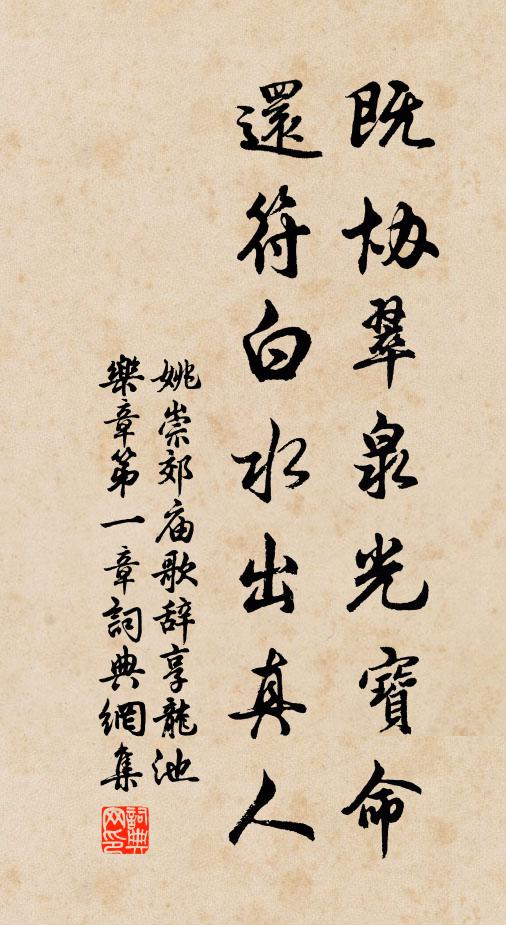 既协翠泉光寶命
還符白水出真人
姚崇郊庙歌辞享龍池
樂章第一章詞典網集
詞典网印